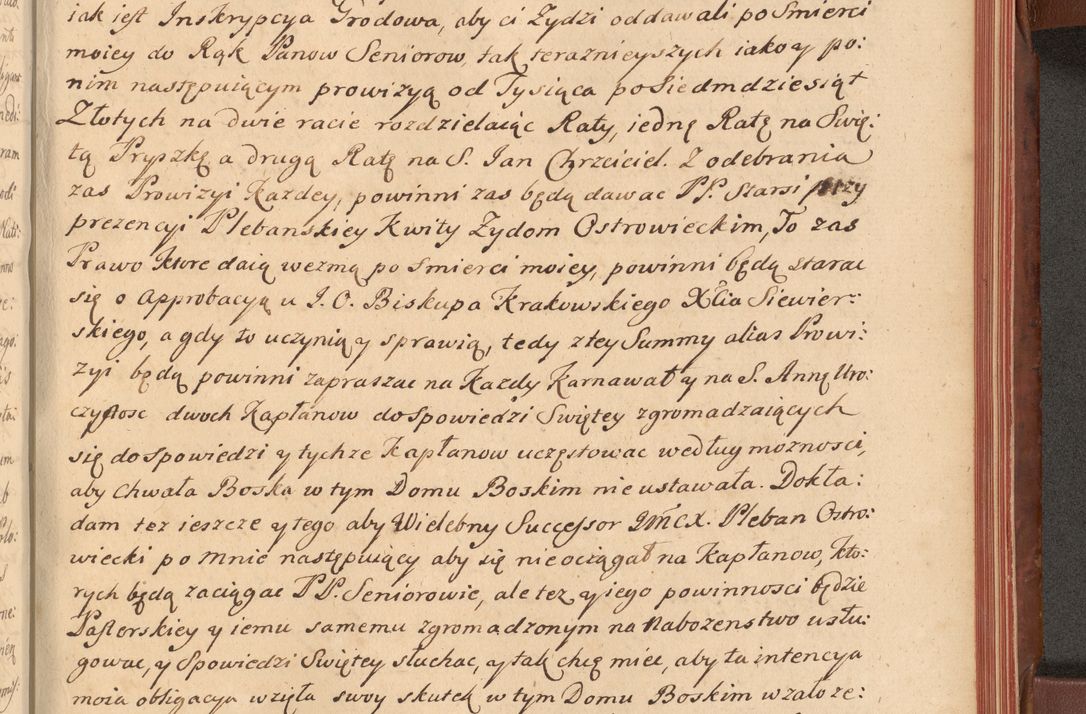 iak jest Inskrypcya Grodowa, aby ci Zydzi oddawali po Smierci
moiey do Rąk Panow Seniorow, tak teraznieyszych iako y po:
nim następuiącym prowizyą od Tysiąca po Siedmdziesiąt
Złotych na dwie racie rozdzielaiąc Raty, iednę Ratę na Swię:
tą Pryszkę, a drugą Ratę na S. Jan Chrzciciel. Z odebrania
zas Prowizyi Kazdey, powinni zas będą dawac PP. Starsi przy
prezencyi Plebanskiey Kwity Zydom Ostrowieckim, To zas
Prawo Ktore daią wezmą po Smierci moiey, powinni będą starac
się o Approbacyą u J. O. Biskupa Krakowskiego Xcia Siewier:
skiego, a gdy to uczynią y sprawią, tedy z tey Summy alias Prowi:
zyi będą powinni zapraszac na Kazdy Karnawał y na S. Annę Uro:
czystosc dwoch Kapłanow do Spowiedzi Swiętey zgromadzaiących
się do Spowiedzi y tychze Kapłanow uczęstowac według moznosci,
aby Chwała Boska w tym Domu Boskim nie ustawała. Dokła:
dam tez ieszcze y tego, aby Wielebny Successor JMCX. Pleban Ostro:
wiecki po mnie następuiący aby się nie ociągał na Kapłanow, kto:
rych będą zaciągac PP. Seniorowie, ale tez y iego powinnosci będzie
Pasterskiey y iemu samemu zgromadzonym na Nabozenstwo usłu:
gowac, y Spowiedzi Swiętey słuchac, y tak chcę miec, aby ta intencya
moia obligacya wzięła swoy skutek w tym Domu Boskim w załoze: